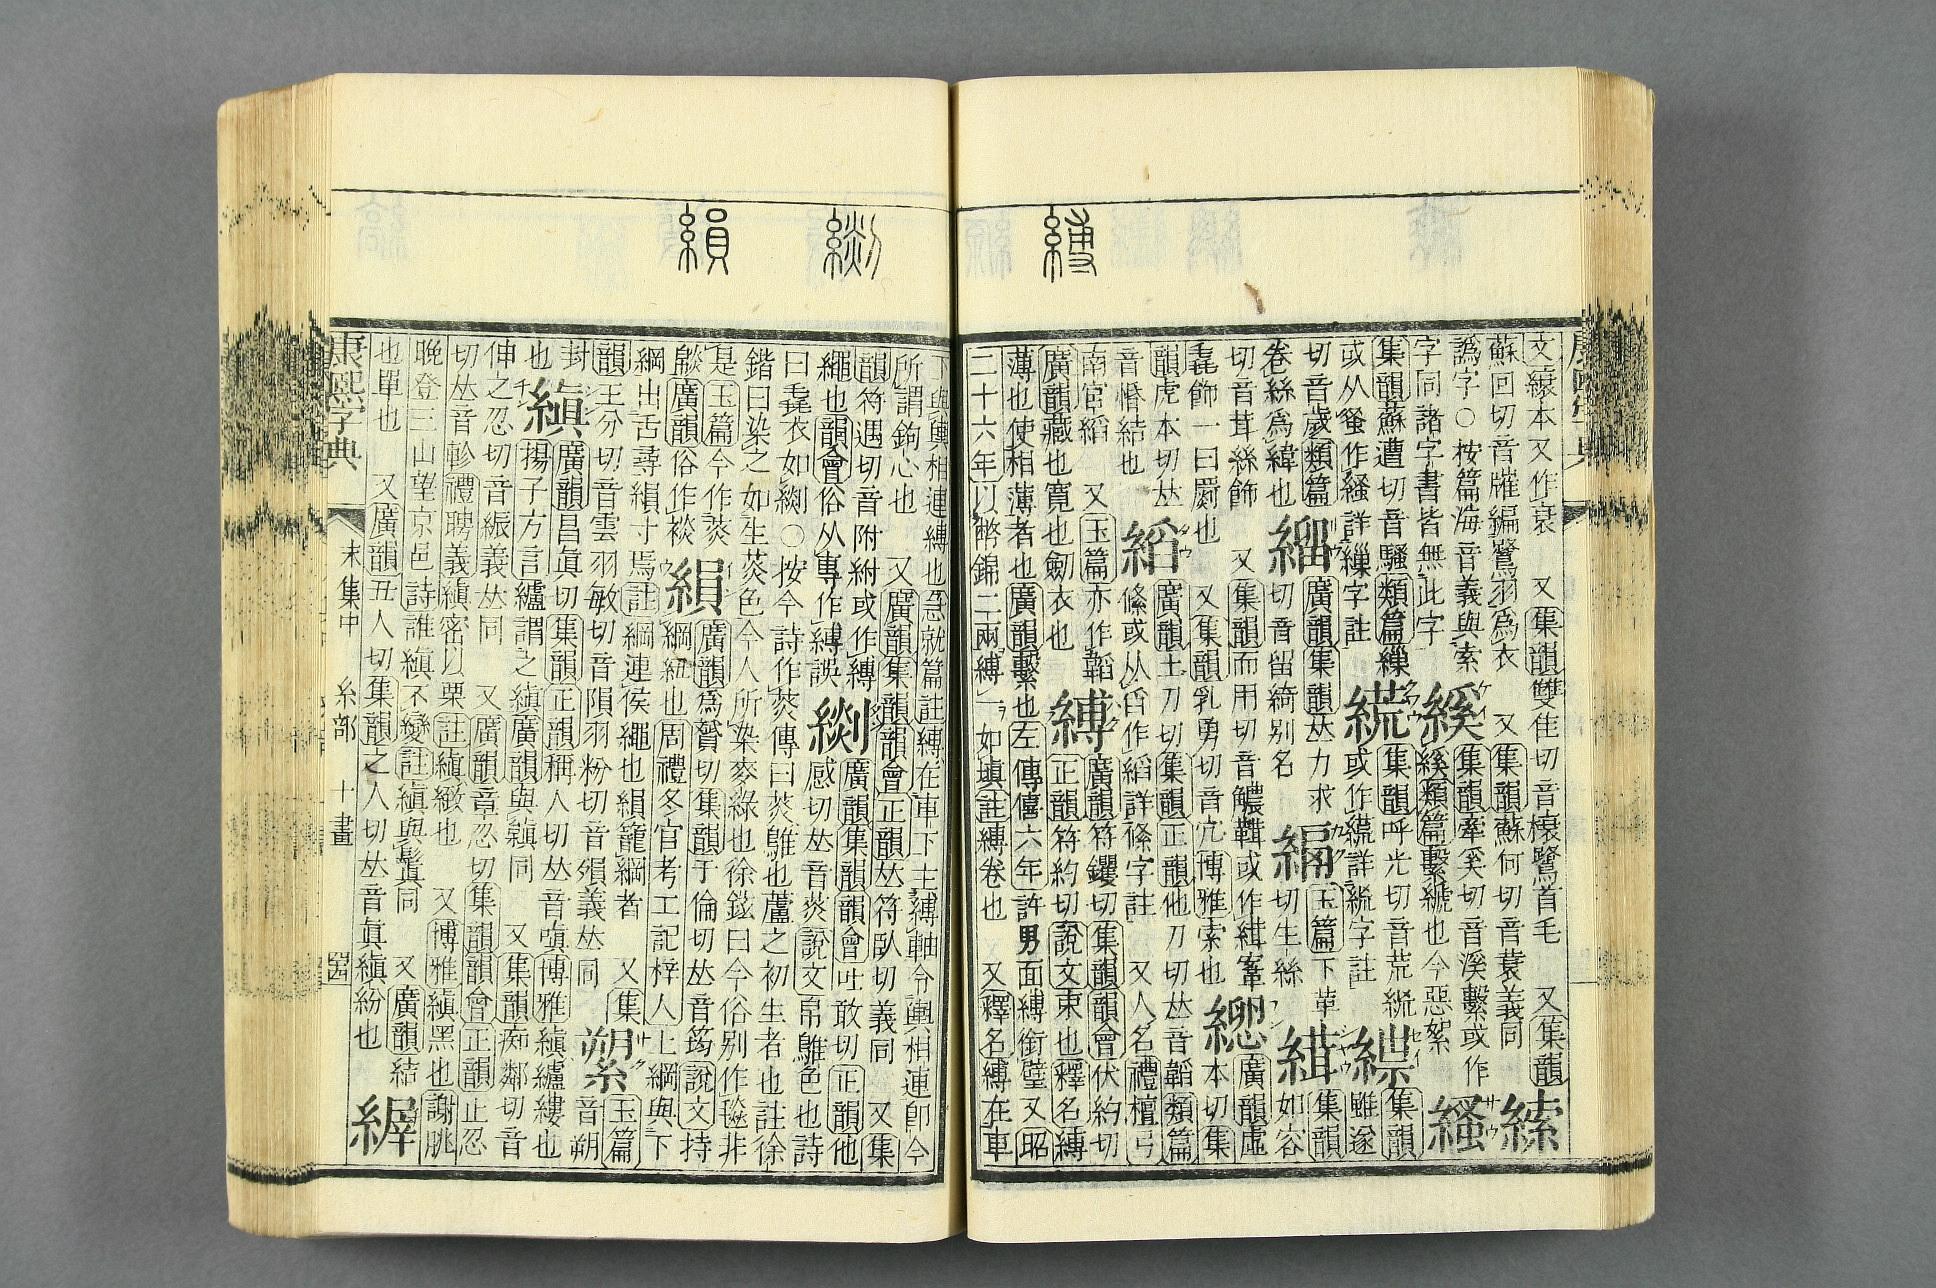 縛
緂
縜
文縗本又作衰　又集韻雙隹切音榱鷺首毛　又集韻
蘇回切音䧳編鷺羽爲衣　又集韻蘇何切音蓑義同
縤
譌字○按篇海音義與索
字同諸字書皆無此字
縘ケイ
集韻牽奚切音溪繫或作
類篇繫也今惡絮
サウ
集韻蘇遭切音騷類篇繰
或从蚤作詳繰字註
クワウ
集韻呼光切音荒絖
或作詳絖字註
セイ
集韻雖遂
切音歲類篇
卷絲爲緯也
リウ
廣韻集韻𠀤力求
切音留綺別名
カク
玉篇下革
切生絲
縙シヤウ
集韻如容
切音茸絲飾　又集韻而用切音鞾或作
毳飾一曰罽也　又集韻乳勇切音宂博雅索也
廣韻虛
本切集
韻虎本切𠀤
音惛結也
縚タウ
廣韻土刀切集韻正韻他刀切𠀤音韜類篇
絛或从舀作縚詳絛字註　又人名禮檀弓
南宮縚　又玉篇亦作韜
廣韻藏也寬也劒衣也
縛
廣韻符钁切集韻韻會伏約切
正韻符約切說文束也釋名縛
薄也使相薄著也廣韻繫也左傳僖六年許男面縛銜璧又昭
二十六年以幣錦二兩縛一如瑱註縛卷也　又釋名縛在車
下與輿相連縛也急就篇註縛在車下主縛軸令與輿相連卽今
所謂鉤心也　又廣韻集韻韻會正韻𠀤符臥切義同　又集
韻符遇切音附紨或作縛
繩也韻會俗从專作縛誤
廣韻集韻韻會吐敢切正韻他
感切𠀤音菼說文帛騅色也詩
曰毳衣如○按今詩作菼傳曰菼騅也蘆之初生者也註徐
鍇曰染之如生菼色今人所染麥綠也徐鉉曰今俗別作毯非
是玉篇今作菼
廣韻俗作裧
縜ウン
廣韻爲贇切集韻于倫切𠀤音筠說文持
綱紐也周禮冬官考工記梓人上綱與下
綱出舌尋縜寸焉註縜連侯繩也縜籠綱者　又集
韻王分切音雲羽敏切音隕羽粉切音殞義𠀤同
サク
玉篇
音朔
封
也
縝シン
廣韻昌眞切集韻正韻稱人切𠀤音嗔博雅縝纑縷也
揚子方言纑謂之縝廣韻與同　又集韻痴鄰切音
伸之忍切音縥義𠀤同　又廣韻章忍切集韻韻會正韻止忍
切𠀤音軫禮聘義縝密以栗註縝緻也　又博雅縝黑也謝朓
晚登三山望京邑詩誰縝不變註縝與鬒同　又廣韻結
也單也　又廣韻丑人切集韻之人切𠀤音眞縝紛也
縡
康熙字典　未集中　糸部　十畫